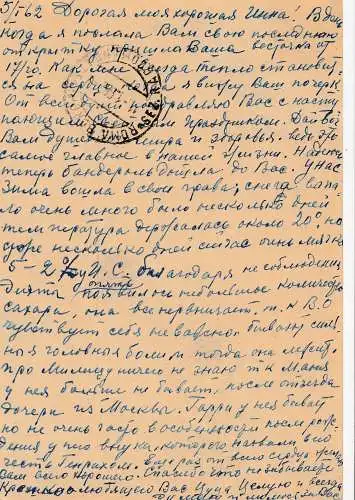 5/I-62 Дорогая моя хорошая Инна! В день
когда я послала Вам свою последнюю
открытку пришла Ваша весточка от
17/го. Как мне всегда тепло становит-
ся на сердце когда я вижу Ваш почерк
От всей души поздравляю Вас с насту-
пающим праздником. Дай бог
Вам душевного мира и здоровья. ведь это
самое главное в нашей жизни. Наверно
теперь бандероль дошла до Вас. У нас
Зима вошла в свои права, снега выпа-
ло очень много было несколько дней
температура держалась около 20°, но
уже несколько дней сейчас очень мягко
5-2° У И.С. благодаря не соблюдению
диэты опять появилось небольшое количество
сахара, она все нервничает, т.к В.О
чувствует себя не важно. бывают силь-
ные головные боли и тогда она лежит.
про Милицу ничего не знаю т.к Маня
у нея больше не бывает, после отъезда
дочери из Москвы. Гарри у нея бывает
но не очень часто в особенности после рож-
дения у него внука, которого назвали в его
честь Генрихом. Еще раз от всего сердца
Вам было хорошо. Спасибо что не забываете
Крепко любящего Вас Целую и всегда